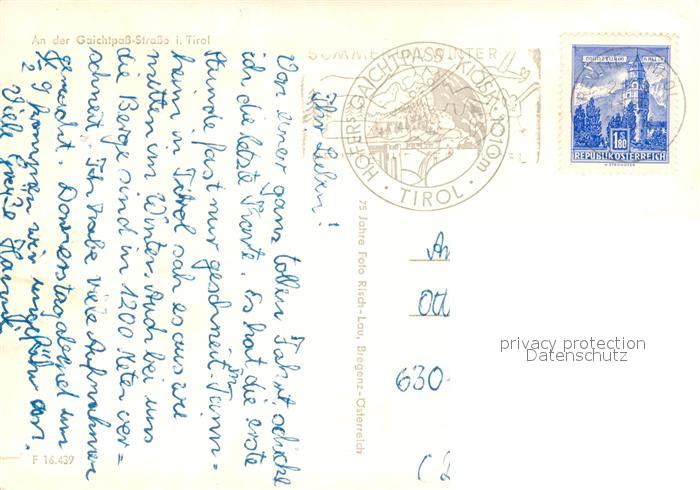 An der Gaichtpaß-Straße i. Tirol
Ihr Lieben!
Von einer ganz tollen Fahrt schicke
ich die letzte Karte. Es hat die erste
Stunde fast nur geschneit. Im Tann=
heim in Tirol sah es aus wie
mitten im Winter. Auch bei uns
die Berge sind in 1200 Meter ver=
schneit. Ich habe viele Aufnahmen
gemacht. Donnerstagabend um
½ 9 kommen wir ungefähr an.
Viele Grüße
F 16.439
75 Jahre Foto Risch-Lau, Bregenz-Österreich
SOMMER WINTER
HÖFERS GAICHTPASS-KIOSK · 1010m
· TIROL ·
TIROL
1.80
REPUBLIK ÖSTERREICH
Ott
630
privacy protection
Datenschutz